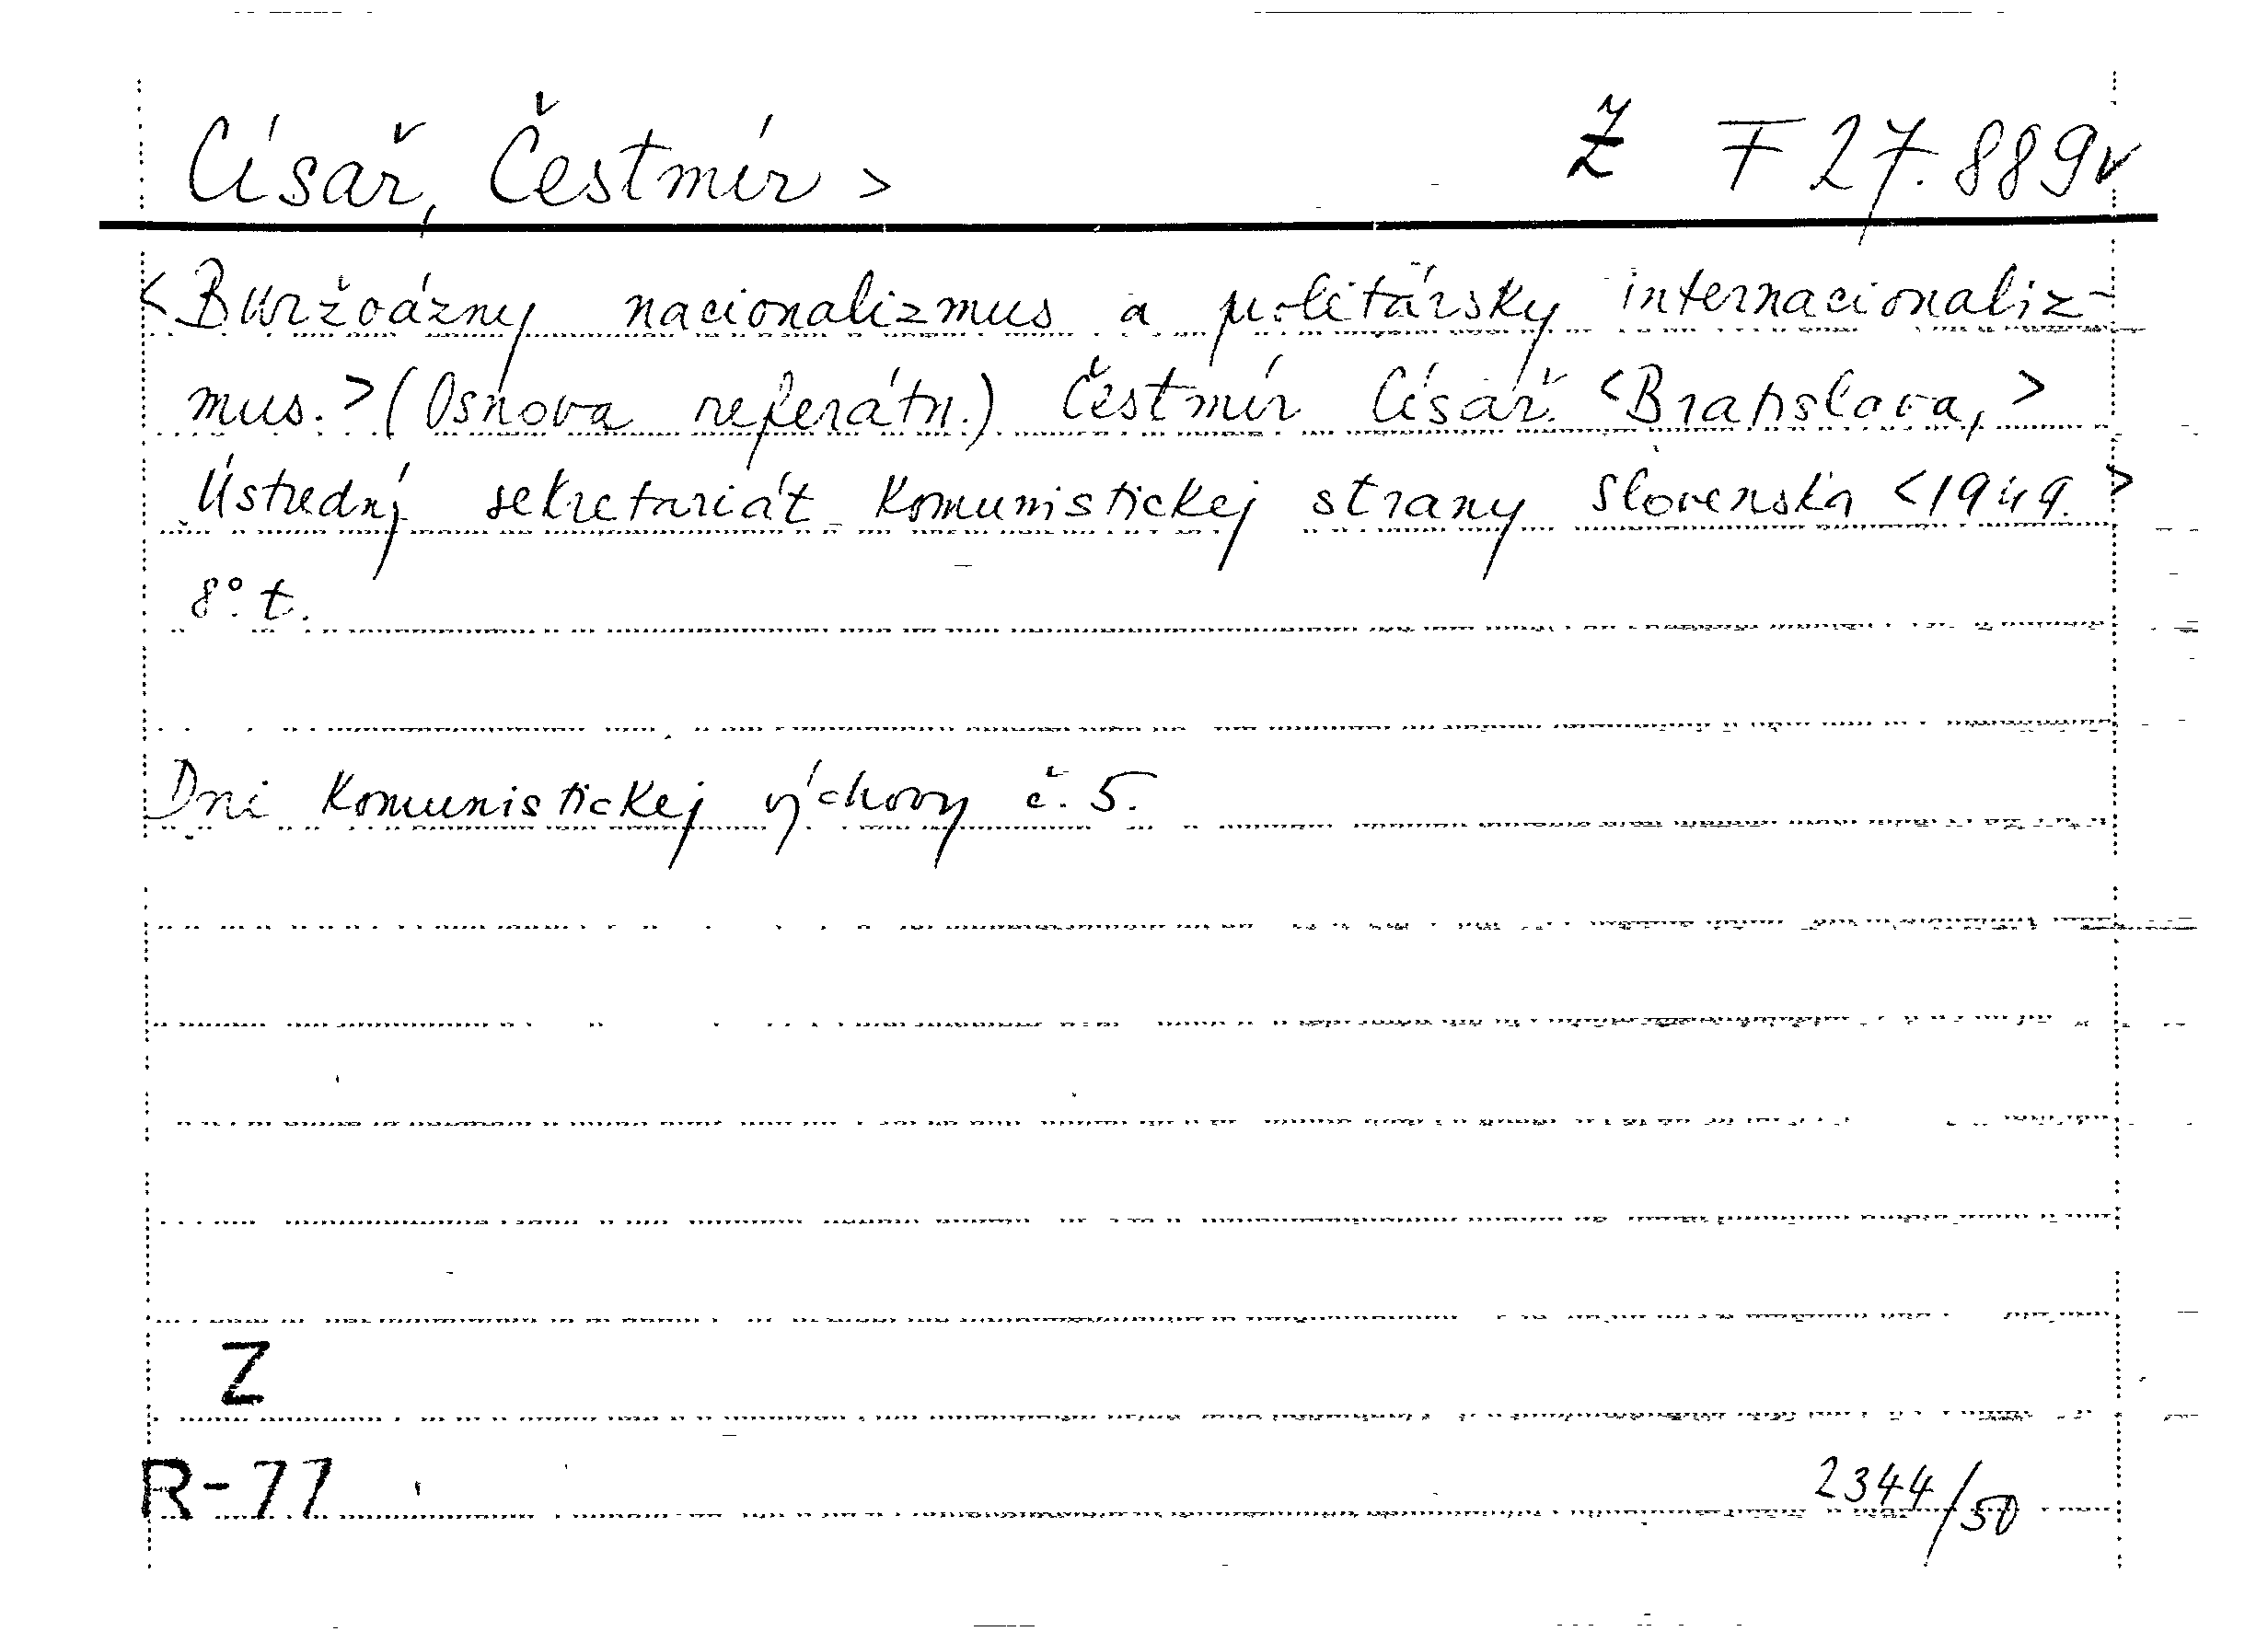 Císař, Čestmír > Ž F 27.889v
<Buržoázny nacionalizmus a proletársky internacionaliz-
mus.> (Osnova referátu.) Čestmír Císař. <Bratislava,>
Ústredný sekretariát Komunistickej strany Slovenska <1949.>
8°. t.
Dni Komunistickej výchovy č. 5.
Z
R-77
2344/50